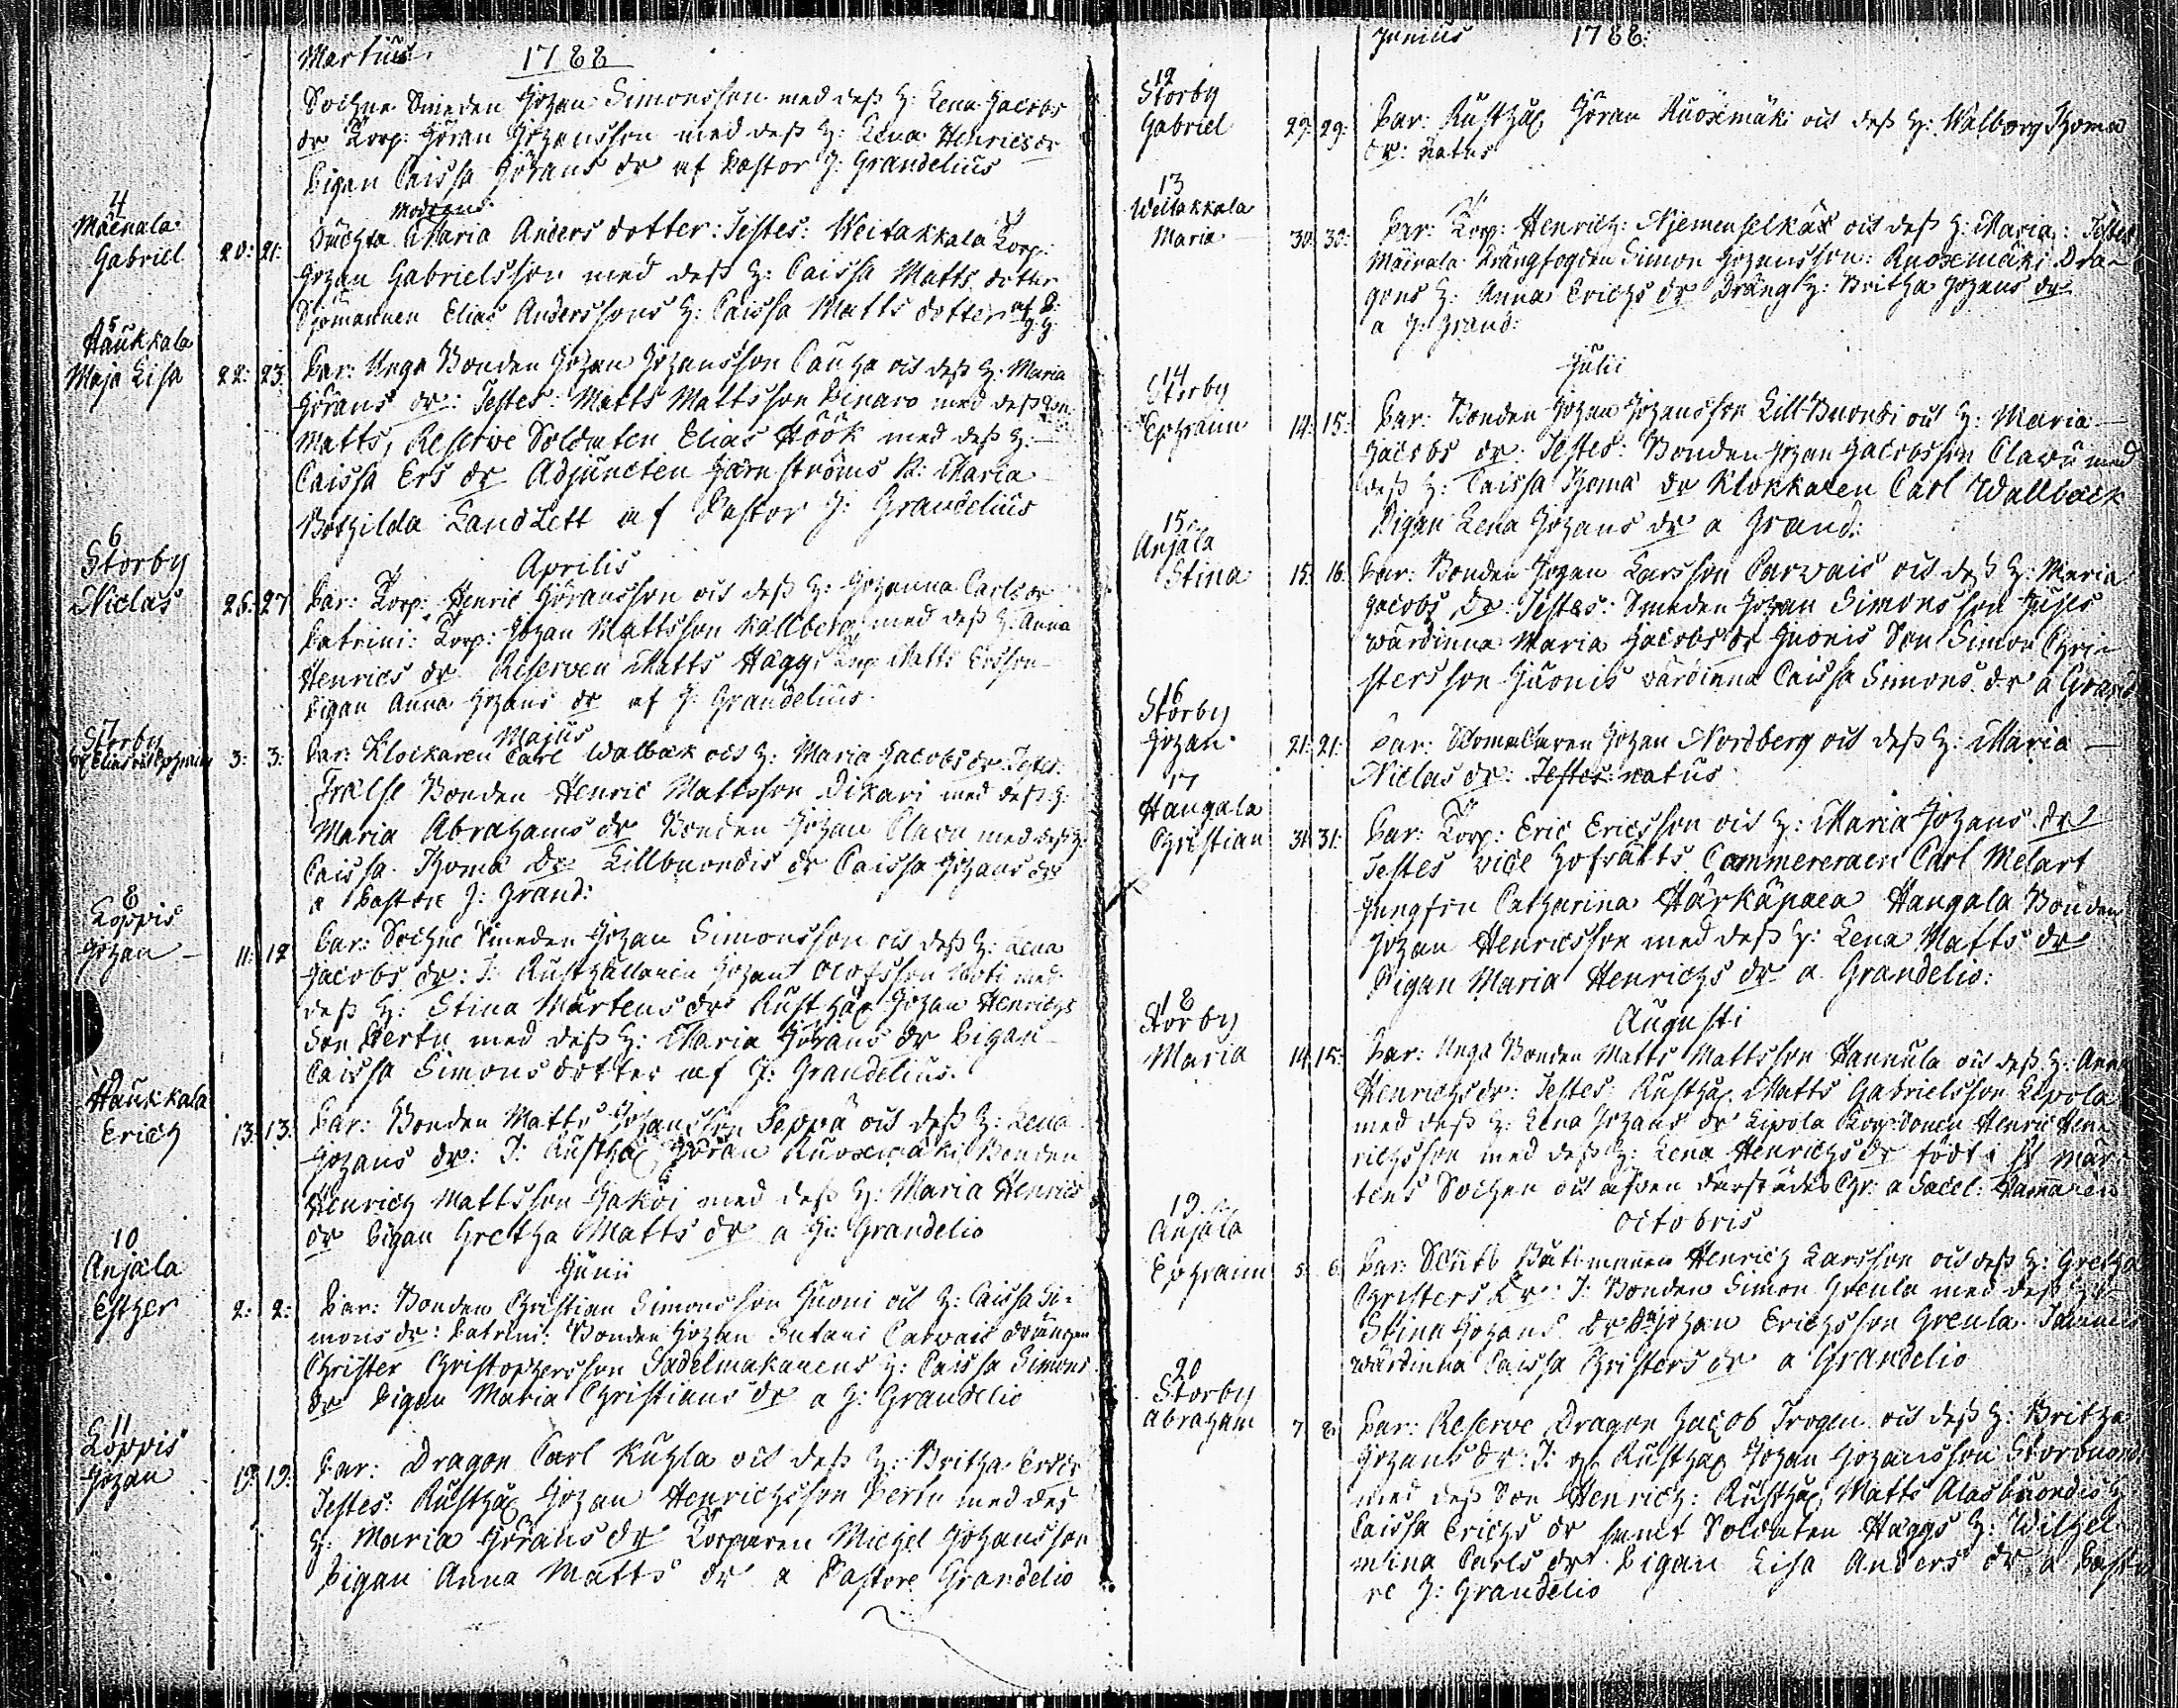 Martius 1788
Sochne Smeden Johan Simonsson med dess h: Lena Jacobs
dr Torp: Göran Johansson med dess h: Lena Henricsdr
Pigan Caissa Görans dr af Pastor J: Grandelius
4
Mäenala
Gabriel
20: 21:
Modren:
Maria Anders dotter: Testes: Weitakkala Torp:
Johan Gabrielsson med dess h: Caissa Matts dotter
Elias Anderssons h: Caissa Matts dotter af P:
J: G:
5
Haukkala
Maja Lisa
22: 23:
Par: Unga Bonden Johan Johansson Cauha och dess h: Maria
Görans dr: Testes: Matts Mattsson Pinaro med dess Son
Matts, Reserve Soldaten Elias Höök med dess h:
Caissa Ers dr Adjuncten Hjernströms P: Maria
Bothilda Landzett af Pastor J: Grandelius
Aprilis
6
Storby
Niclas
26: 27
Par: Torp: Henric Göransson och dess h: Johanna Carlsdr
Patrini: Torp: Johan Mattsson Kallberg med dess h: Anna
Henrics dr Reserven Matts Hägg Torp Matts Ersson
Pigan Anna Johans dr af J: Grandelius
Majus
7
Storby
Elias och Ephraim
3: 3:
Par: Klockaren Carl Walbek och h: Maria Jacobsdr Testes:
Frälse Bonden Henric Mattsson Dikari med dess h:
Maria Abrahams dr Bonden Johan Clavu med dess h:
Caissa Thoma dr Lillbuondis dr Caissa Johans dr
a Pastore J: Grand:
8
Loppis
Johan
11: 12
Par: Sochne Smeden Johan Simonsson och dess h: Lena
Jacobs dr: T: Rusthållaren Johan Olofsson Uoti med
dess h: Stina Mårtens dr Rusthål Johan Henrichs
Son Pertu med dess h: Maria Görans dr Pigan
Caissa Simons dotter af J: Grandelius
9
Haukkala
Erich
13: 13:
Par: Bonden Matts Johansson Seppä och dess h: Lena
Johans dr: T: Rusthål Göran Ruoxemäki Bonden
Henrich Mattsson Jakoi med dess h: Maria Henrics
dr Pigan Gretha Matts dr a J: Grandelio
Junii
10
Anjala
Esther
2: 2:
Par: Bonden Christian Simonsson Huoni och h: Caissa Si-
mons dr: Patrini: Bonden Johan Sutari Carvais drängen
Christer Christophersson Sadelmakarens h: Caissa Simons
dr Pigan Maria Christians dr a J: Grandelio
11
Loppis
Johan
19: 19:
Par: Dragon Carl Kuhla och dess h: Britha Ersdr
Testes: Rusthål Johan Henrichsson Pertu med des
h: Maria Görans dr Torparen Michel Johansson
Pigan Anna Matts dr a Pastore Grandelio
Junius 1788:
12
Storby
Gabriel
29: 29:
Par: Rusthål Göran Ruoxemäki och dess h: Walborg Thoma
dr: natus
13
Weitakkala
Maria
30: 30:
Par: Torp: Henrich: Njemenselkäs och dess h: Maria: Testes
Mairala Drängfogden Simon Johansson: Ruoxemäki Dra-
gons h: Anna Erichs dr Dräng h: Britha Johans dr
a J: Grand:
Julii
14
Storby
Ephraim
14: 15:
Par: Bonden Johan Johansson Lill-Buondi och h: Maria
Jacobs dr: Testes: Bonden Johan Jacobsson Clavu med
dess h: Caissa Thoma dr Klokkaren Carl Wallbäck
Pigan Lena Johans dr a Grand:
15
Anjala
Stina
15: 16:
Par: Bonden Johan Larsson Carvais och dess h: Maria
Jacobs dr: Testes: Smeden Johan Simonsson
wärdinna Maria Jacobs dr Huonis Son Simon Chri-
stersson Huonis wärdinna Caissa Simons dr a Grand
16
Storby
Johan
21: 21:
Par: Johan Nordberg och dess h: Maria
Niclas dr: Testes: natus
17
Hangala
Christian
31: 31:
Par: Torp: Eric Ericsson och h: Maria Johans dr
Testes vice Hofrätts Cammereraen Carl Melart
Jungfrn Catharina Härkäpaea Hangala Bonden
Johan Henricsson med dess h: Lena Matts dr
Pigan Maria Henrichs dr a Grandelio:
Augusti
18
Storby
Maria
14 15:
Par: Unga Bonden Matts Mattsson Hannula och dess h: Anna
Henrichsdr: Testes: Rusthål Matts Gabrielsson Lipola
med dess h: Lena Johans dr Lipola Henric Hen-
richsson med dess h: Lena Henrichsdr född i St mår-
tens Sochen och därstädes Chr: a Sacel:
Octobris
19
Anjala
Ephraim
5: 6:
Par: Båtsmannen Henrich Larsson och dess h: Gretha
Christers dr: T: Bonden Simon Greula med dess h:
Stina Johans dr Johan Erichsson Greula
wärdinna Caissa Christers dr a Grandelio
20
Storby
Abraham
7 8
Par: Reserve Dragon Jacob Trogen och dess h: Britha
Johans dr: T: Rusthål Johan Johansson Storbuondi
med dess Son Henrich: Rusthål Matts Alasbuondis h
Caissa Erichs dr samt Soldaten Häggs h: Wilhel
mina Carls dr Pigan Lisa Anders dr a Pasto
re J: Grandelio